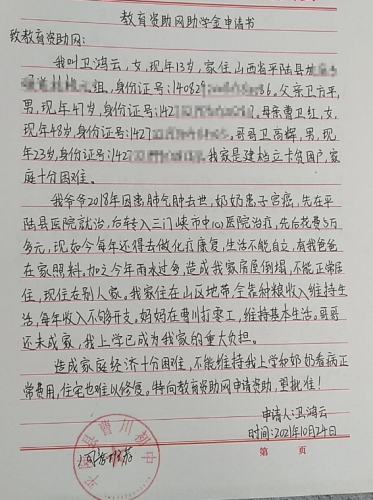 教育资助网助学金申请书
致教育资助网：
我叫卫鸿云，女，现年13岁，家住山西省平陆县
组，身份证号：140829 父亲卫方平，
男，现年47岁，身份证号：142 母亲曹卫红，女，
现年48岁，身份证号：142 哥哥卫高辉，男，现
年23岁，身份证号：142 我家是建档立卡贫困户，家
庭十分困难。
我爷爷2018年因患肺气肿去世，奶奶患子宫癌，先在平
陆县医院就治，后转入三门峡市中心医院治疗，先后花费5万
多元，现如今每年还得去做化疗康复，生活不能自立，有我爸爸
在家照料。加之今年雨水过多，造成我家房屋倒塌，不能正常居
住，现住在别人家。我家住在山区地带，全靠种粮收入维持生
活，每年收入不够开支。妈妈在曹川打零工，维持基本生活。哥哥
还未成家，我上学已成为我家的重大负担。
造成家庭经济十分困难，不能维持我上学和奶奶看病正
常费用，住宅也难以修复。特向教育资助网申请资助，望批准！
申请人：卫鸿云
时间：2021年10月24日
平陆县曹川初中
第 页